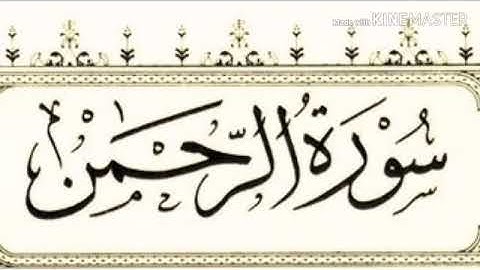 Made with KINEMASTER
سُوْرَةُ الرَّحْمٰنْ